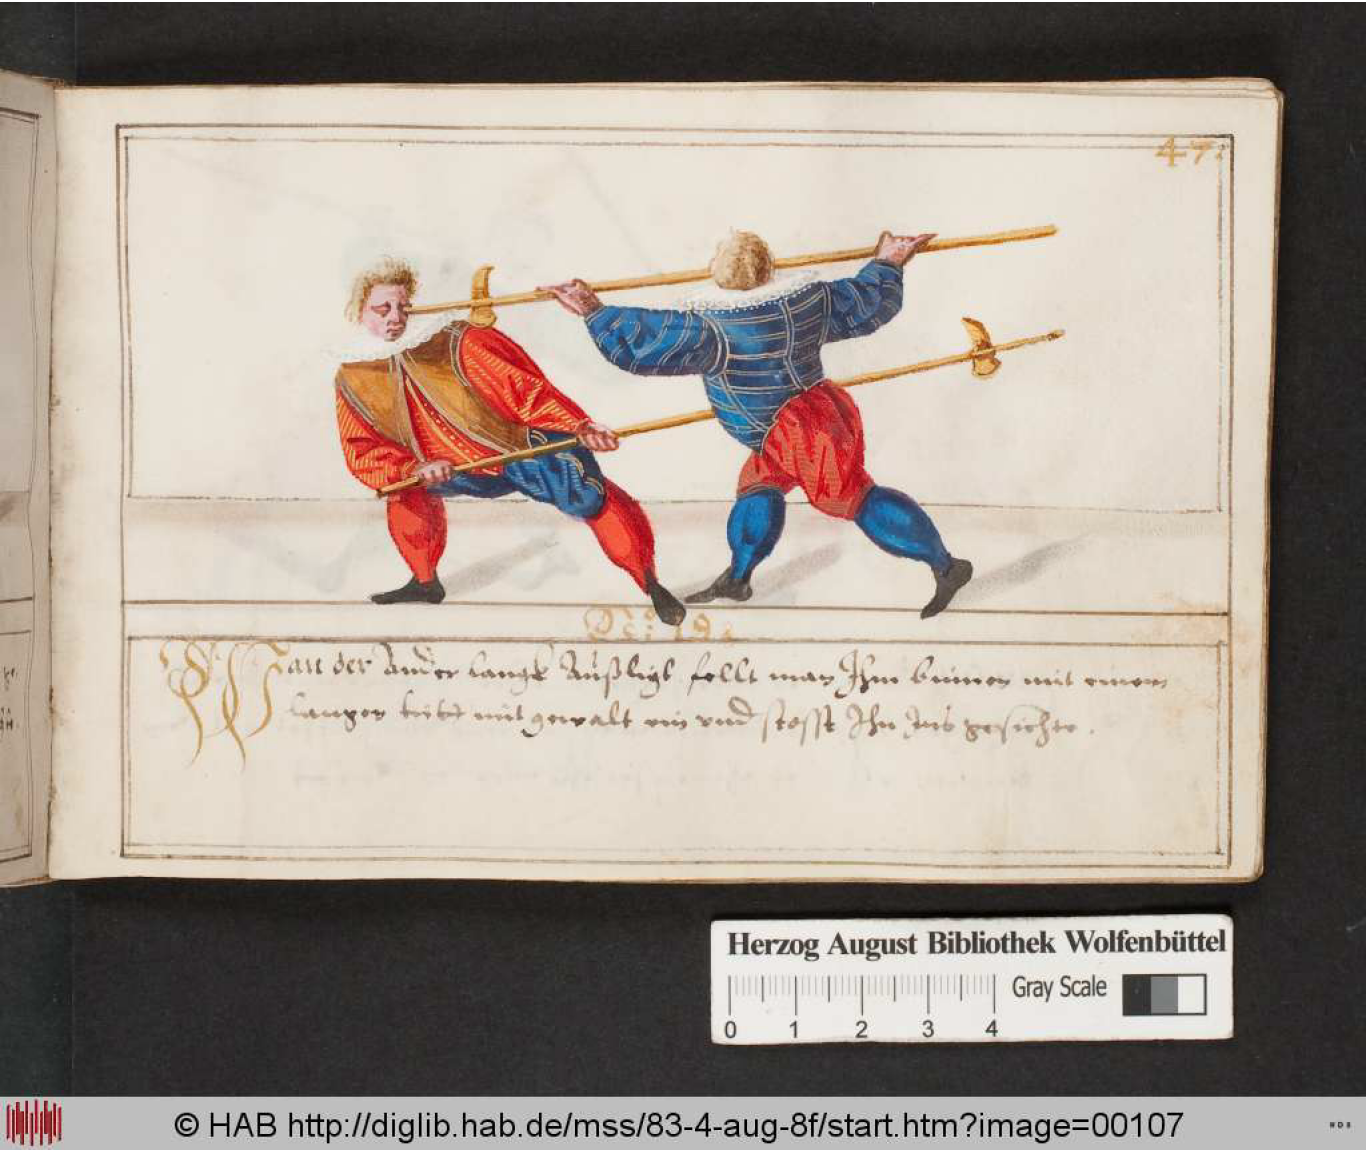 47:
N̊: 19:
Wan der Ander langk Außligt fellt man Ihm binnen mit einem
langen tritt mit gewalt ein vnd stosst Ihn Ins gesichte.
Herzog August Bibliothek Wolfenbüttel
Gray Scale
0 1 2 3 4
© HAB http://diglib.hab.de/mss/83-4-aug-8f/start.htm?image=00107